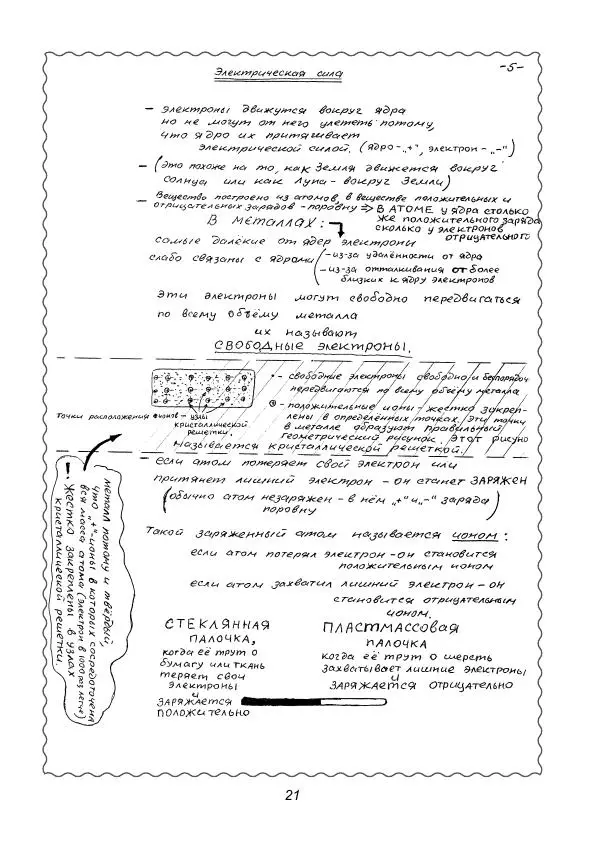 -5-
Электрическая сила
- электроны движутся вокруг ядра
но не могут от него улететь потому,
что ядро их притягивает
электрической силой. (ядро-„+", электрон-„-")
- (это похоже на то, как Земля движется вокруг
солнца или как Луна-вокруг Земли)
- Вещество построено из атомов, в веществе положительных и
отрицательных зарядов - поровну ⇒ В АТОМЕ у ядра столько
же положительного заряда
сколько у электронов
отрицательного
В металлах:
самые далёкие от ядер электроны
слабо связаны с ядрами
-из-за удалённости от ядра
-из-за отталкивания от более
близких к ядру электронов
Эти электроны могут свободно передвигаться
по всему объёму металла
их называют
СВОБОДНЫЕ электроны.
• - свободные электроны свободно и беспорядоч
передвигаются по всему объёму металла
⊕ - положительные ионы жестко закреп-
лены в определённых точках, эти точки
в металле образуют правильный
геометрический рисунок. Этот рисуно
называется кристаллической решёткой.
Точки расположения ионов - узлы
кристаллической
решетки.
если атом потеряет свой электрон или
притянет лишний электрон - он станет ЗАРЯЖЕН
(обычно атом незаряжен - в нём „+" и „-" заряда
поровну)
Такой заряженный атом называется ионом:
если атом потерял электрон-он становится
положительным ионом
если атом захватил лишний электрон - он
становится отрицательным
ионом.
металл потому и твёрдый,
что „+"-ионы в которых сосредоточена
вся масса атома (электрон в 1000 раз легче)
- жестко закреплены в узлах
кристаллической решетки.
СТЕКЛЯННАЯ
ПАЛОЧКА,
когда её трут о
бумагу или ткань
теряет свои
электроны
и
ЗАРЯЖАЕТСЯ
ПОЛОЖИТЕЛЬНО
ПЛАСТМАССОВАЯ
ПАЛОЧКА
когда её трут о шерсть
захватывает лишние электроны
и
ЗАРЯЖАЕТСЯ ОТРИЦАТЕЛЬНО
21